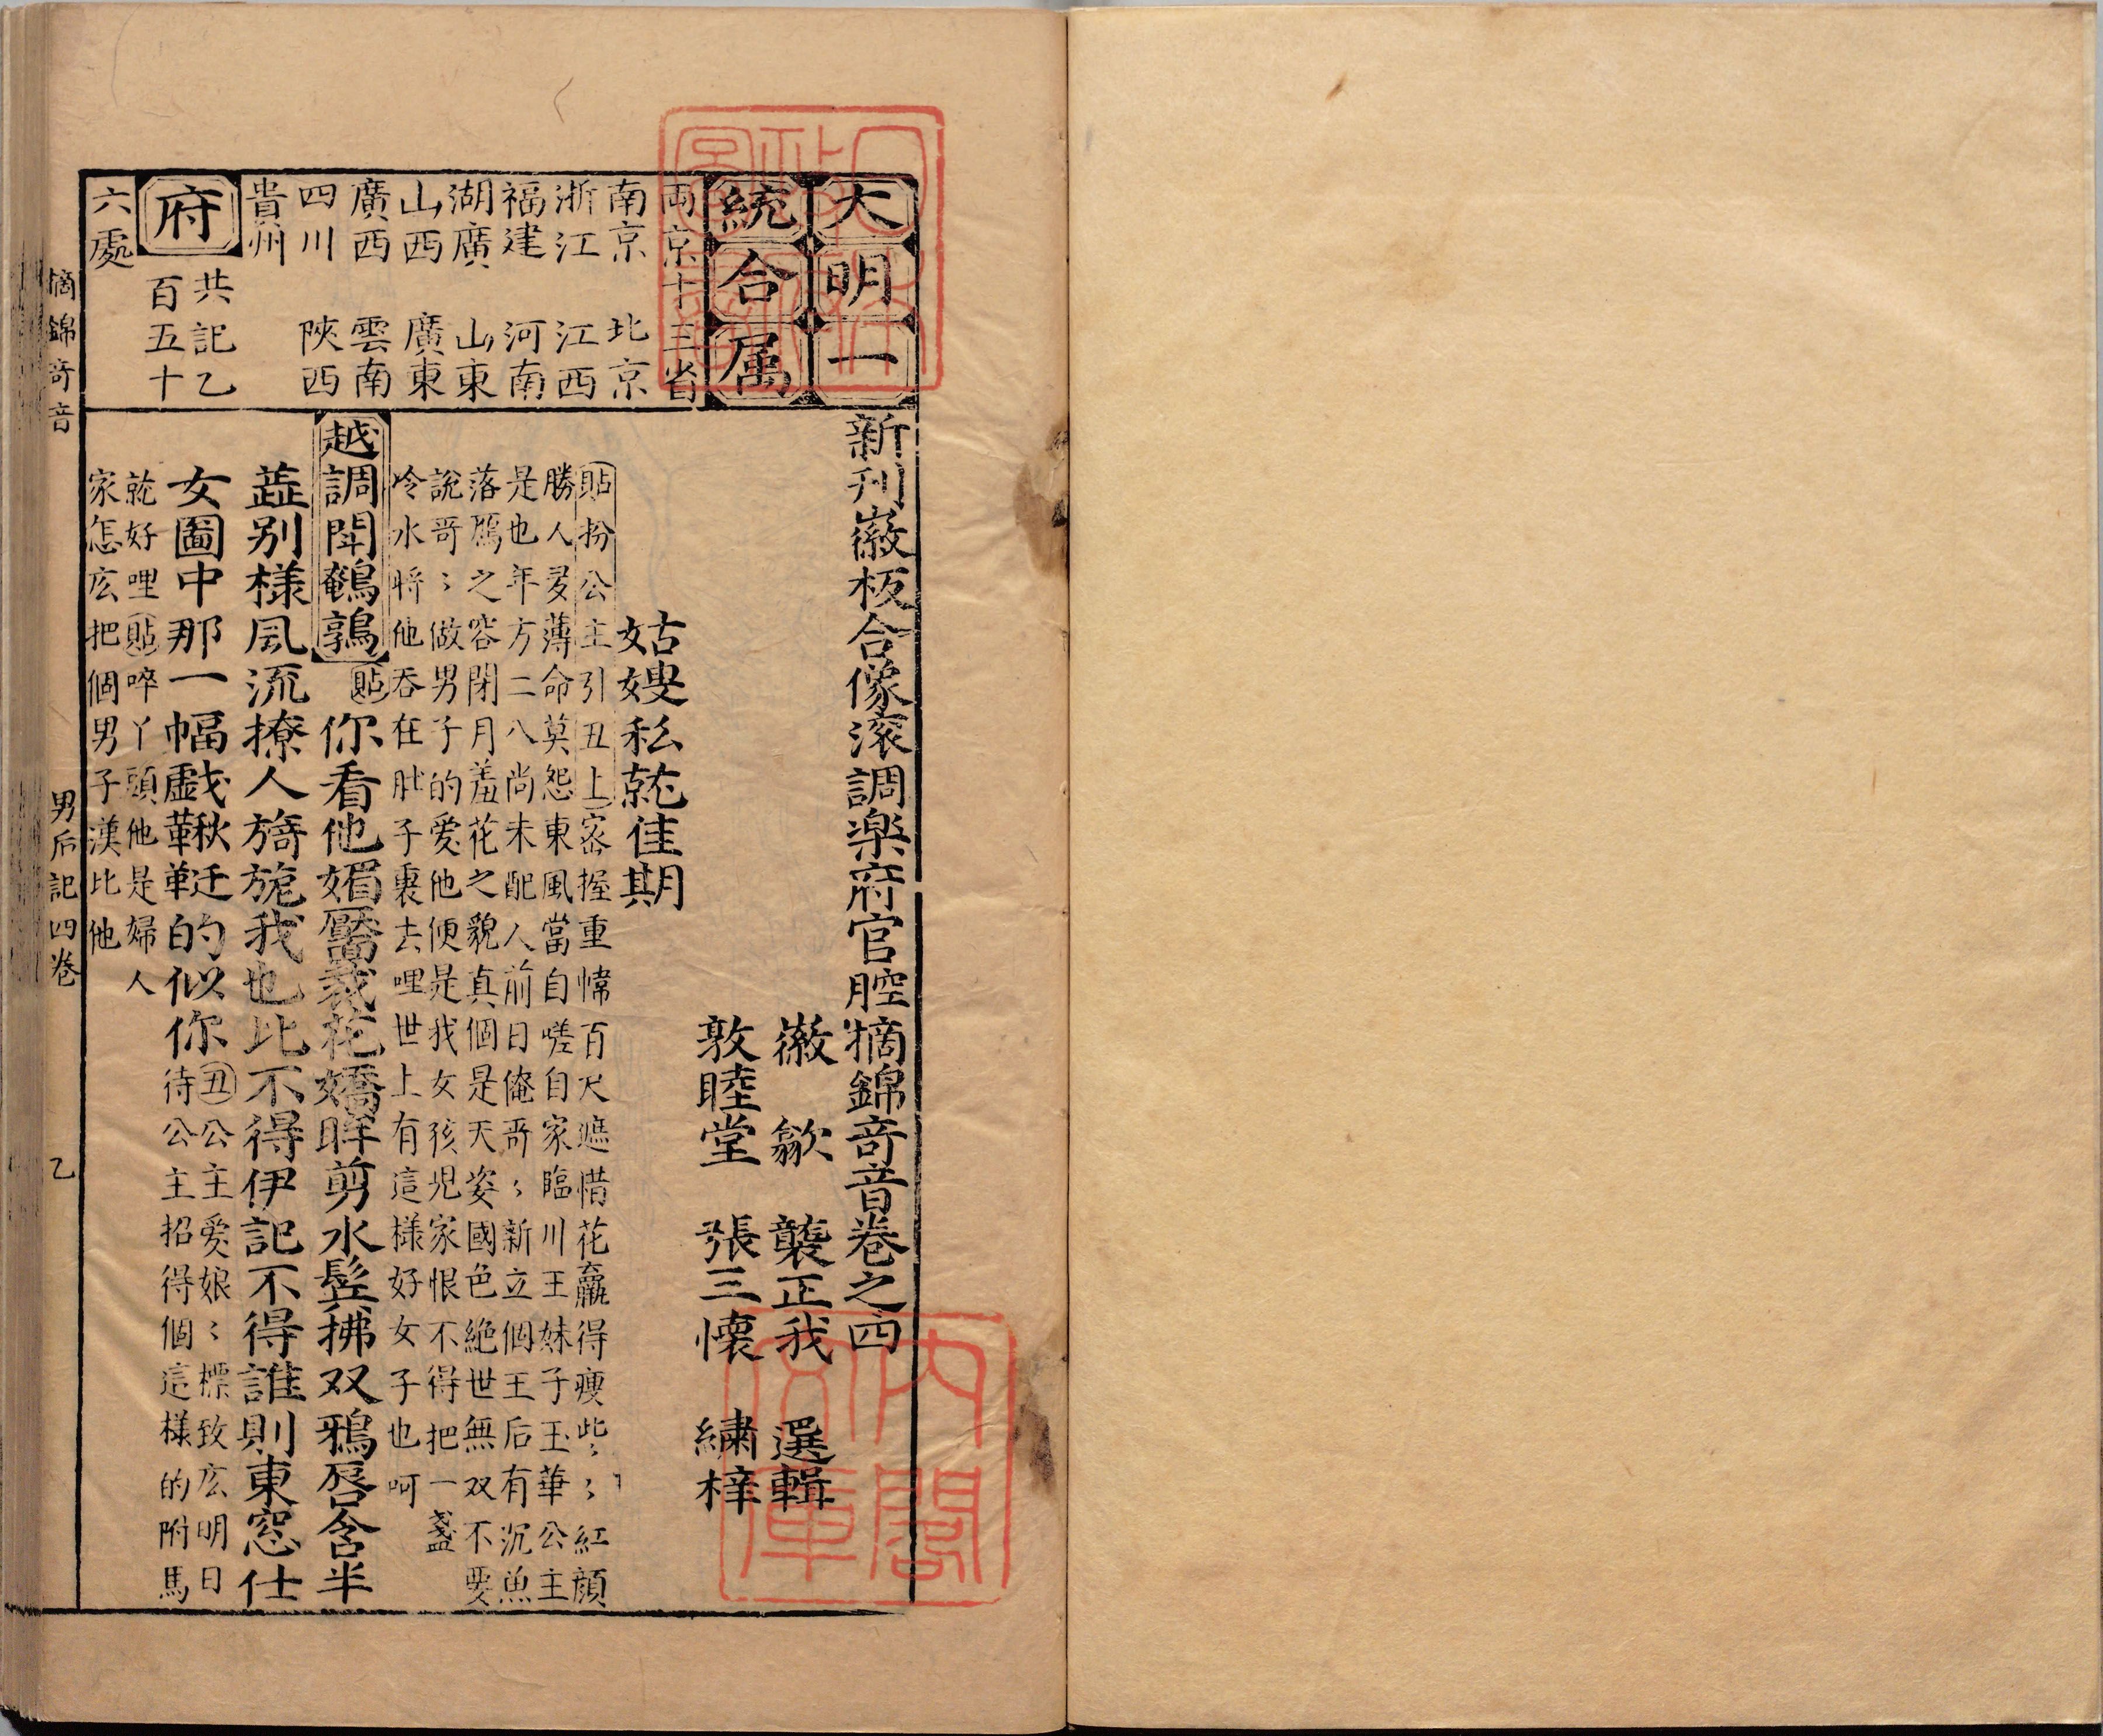 大明一
統合属
兩京十三省
南京　北京
浙江　江西
福建　河南
湖廣　山東
山西　廣東
廣西　雲南
四川　陝西
貴州
府
共記乙
百五十
六處
新刊徽板合像滚調楽府官腔摘錦奇音卷之四
徽　歙　龔正我　選輯
敦睦堂　張三懷　繡梓
姑嫂私就佳期
貼扮公主引丑上　宻握重幃百尺遮惜花羸得瘦些〻紅顔
勝人多薄命莫怨東風當自嗟自家臨川王妹子玉華公主
是也年方二八尚未配人前日俺哥〻新立個王后有沉魚
落鴈之容閉月羞花之貌真個是天姿國色絶世無双不要
說哥〻做男子的愛他便是我女孩児家恨不得把一盞
冷水將他吞在肚子裏去哩世上有這樣好女子也呵
越調鬪鵪鶉　貼　你看他媚靨裁花嬌眸剪水髩拂双鴉唇含半
蕋别樣風流撩人旖旎我也比不得伊記不得誰則東窓仕
女圖中那一幅戯鞦韆的似你　丑　公主愛娘〻標致庅明日
待公主招得個這樣的附馬
就好哩　貼　啐丫頭他是婦人
家怎庅把個男子漢比他
摘錦奇音
男后記四卷
乙
内閣
文庫